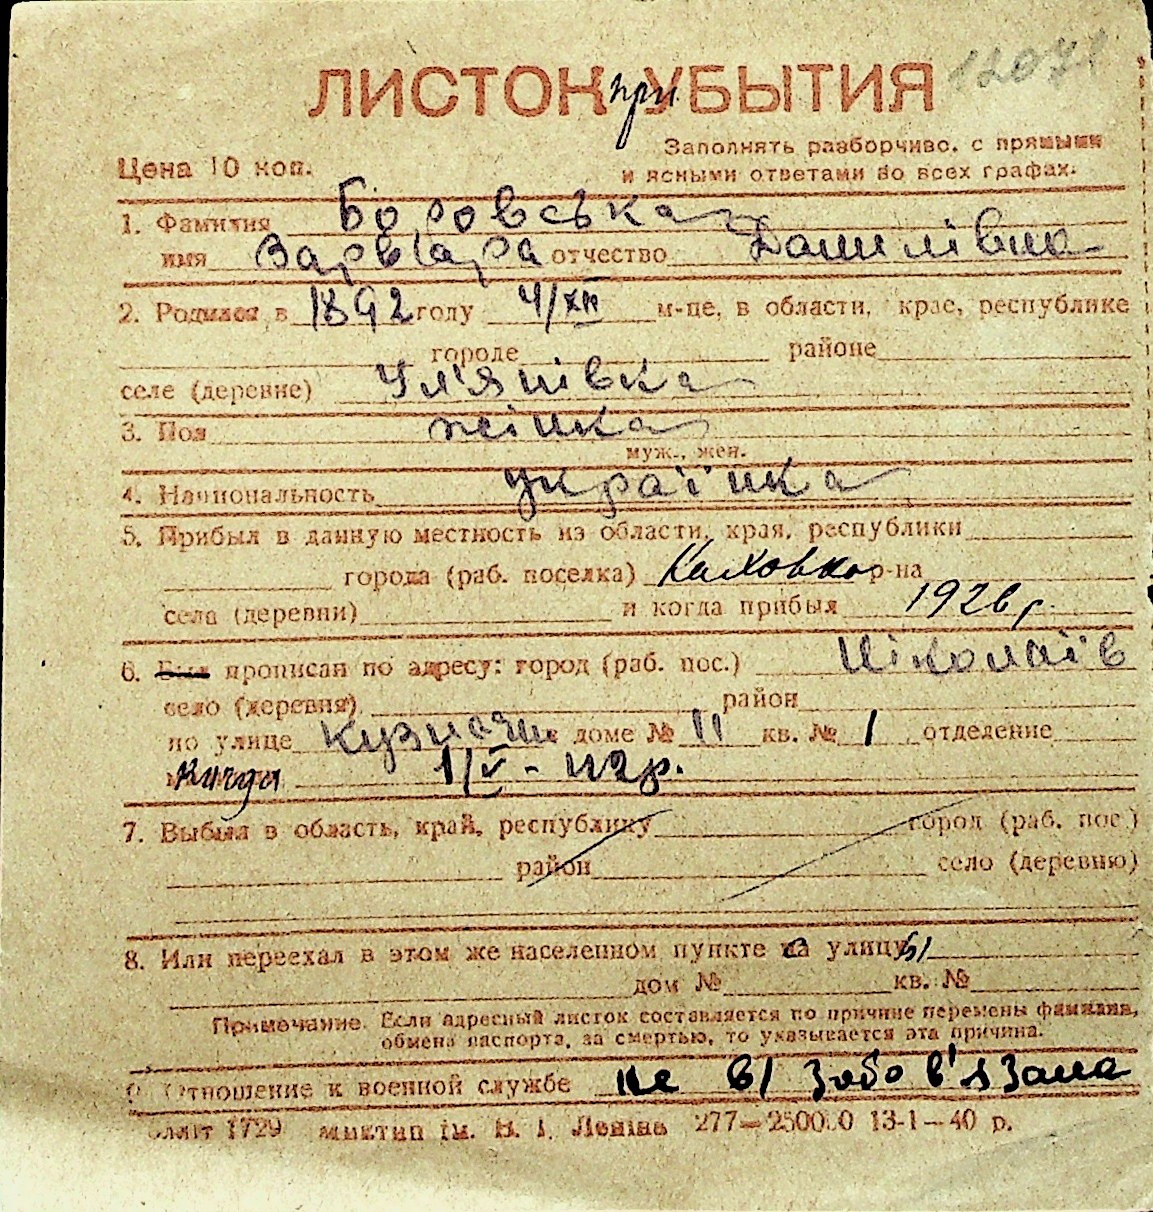 12071
ЛИСТОК при УБЫТИЯ
Заполнять разборчиво, с прямыми
Цена 10 коп. и ясными ответами во всех графах.
1. Фамилия Боровська
имя Варвара отчество Данилівна
2. Родился в 1892 году 4/XII м-це, в области, крае, республике
городе районе
селе (деревне) Ул'янівка
3. Пол жінка
муж., жен.
4. Национальность українка
5. Прибыл в данную местность из области, края, республики
города (раб. поселка) Каховка р-на
села (деревни) и когда прибыл 1926 г.
6. Был прописан по адресу: город (раб. пос.) Ніколаїв
село (деревня) район
по улице Кузнечн. доме № 11 кв. № 1 отделение
Когда 1/V - 42 р.
7. Выбыл в область, край, республику город (раб. пос.)
район село (деревню)
8. Или переехал в этом же населенном пункте с улицы
дом № кв. №
Примечание. Если адресный листок составляется по причине перемены фамилии,
обмена паспорта, за смертью, то указывается эта причина.
9. Отношение к военной службе не в/зобов'язана
1729 ім. В. І. Леніна 277—250000 13-1—40 р.